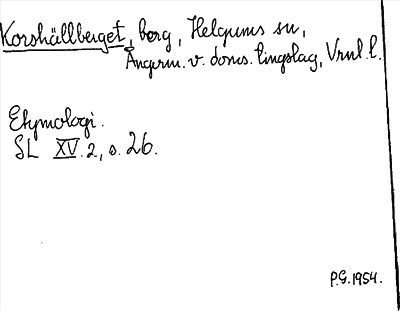 Korshällberget, berg, Helgums sn,
Ångerm. v. doms. tingslag, Vrnl. l.
Etymologi.
SL XV. 2, s. 26.
P.G. 1954.